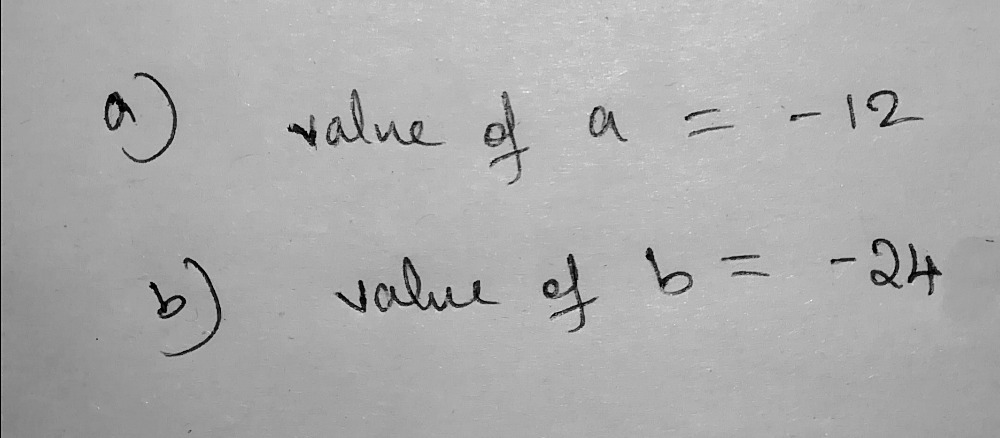 a) value of a = -12
b) value of b = -24